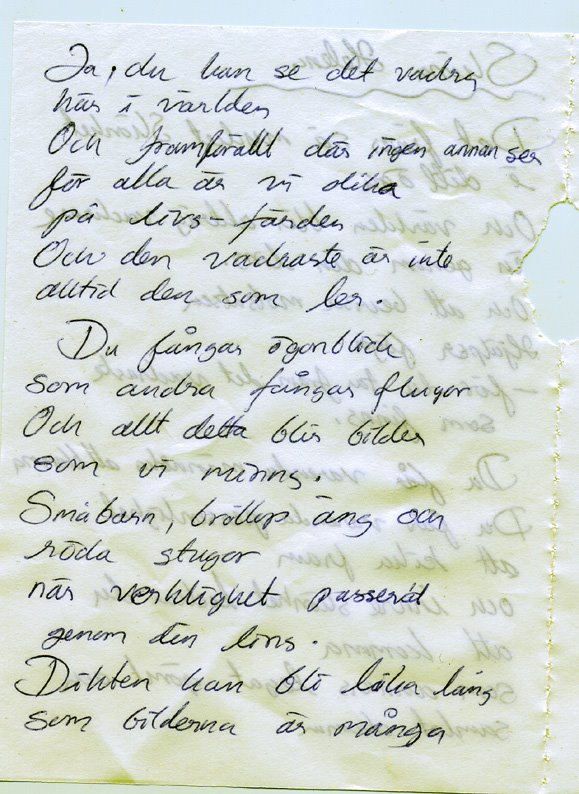 Ja, du kan se det vackra
här i världen
Och framförallt där ingen annan ser
för alla är vi olika
på livs-färden
Och den vackraste är inte
alltid den som ler.
Du fångar ögonblick
som andra fångar flugor
Och allt detta blir bilder
som vi minns.
Småbarn, bröllop äng och
röda stugor
när verklighet passerat
genom din lins.
Dikten kan bli lika lång
som bilderna är många